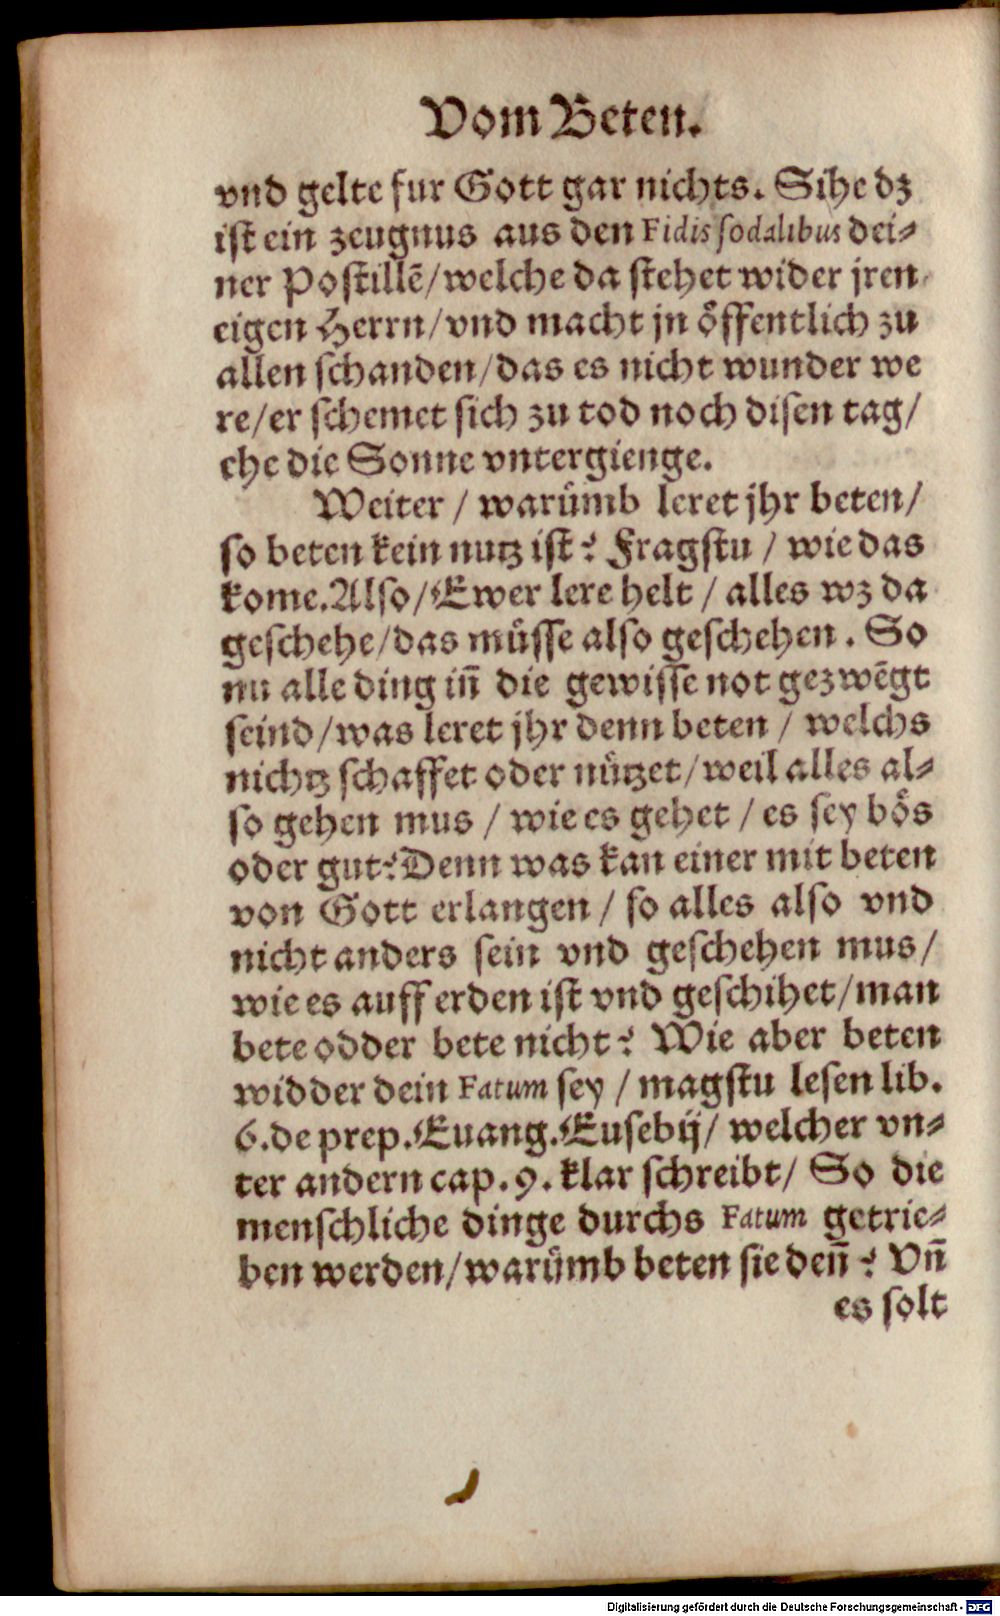 Vom Beten.
vnd gelte fur Gott gar nichts. Sihe dz
ist ein zeugnus aus den Fidis sodalibus dei⸗
ner Postillē/welche da stehet wider jren
eigen Herrn/vnd macht jn öffentlich zu
allen schanden/das es nicht wunder we
re/er schemet sich zu tod noch disen tag/
ehe die Sonne vntergienge.
Weiter / warümb leret jhr beten/
so beten kein nutz ist? Fragstu / wie das
kome. Also/Ewer lere helt / alles wz da
geschehe/das müsse also geschehen. So
nu alle ding iñ die gewisse not gezwēgt
seind/was leret jhr denn beten / welchs
nichtz schaffet oder nützet/weil alles al⸗
so gehen mus / wie es gehet / es sey bös
oder gut? Denn was kan einer mit beten
von Gott erlangen / so alles also vnd
nicht anders sein vnd geschehen mus/
wie es auff erden ist vnd geschihet/man
bete odder bete nicht? Wie aber beten
widder dein Fatum sey / magstu lesen lib.
6. de prep. Euang. Eusebij/ welcher vn⸗
ter andern cap. 9. klar schreibt/ So die
menschliche dinge durchs Fatum getrie⸗
ben werden/warümb beten sie deñ? Vñ
es solt
Digitalisierung gefördert durch die Deutsche Forschungsgemeinschaft - DFG